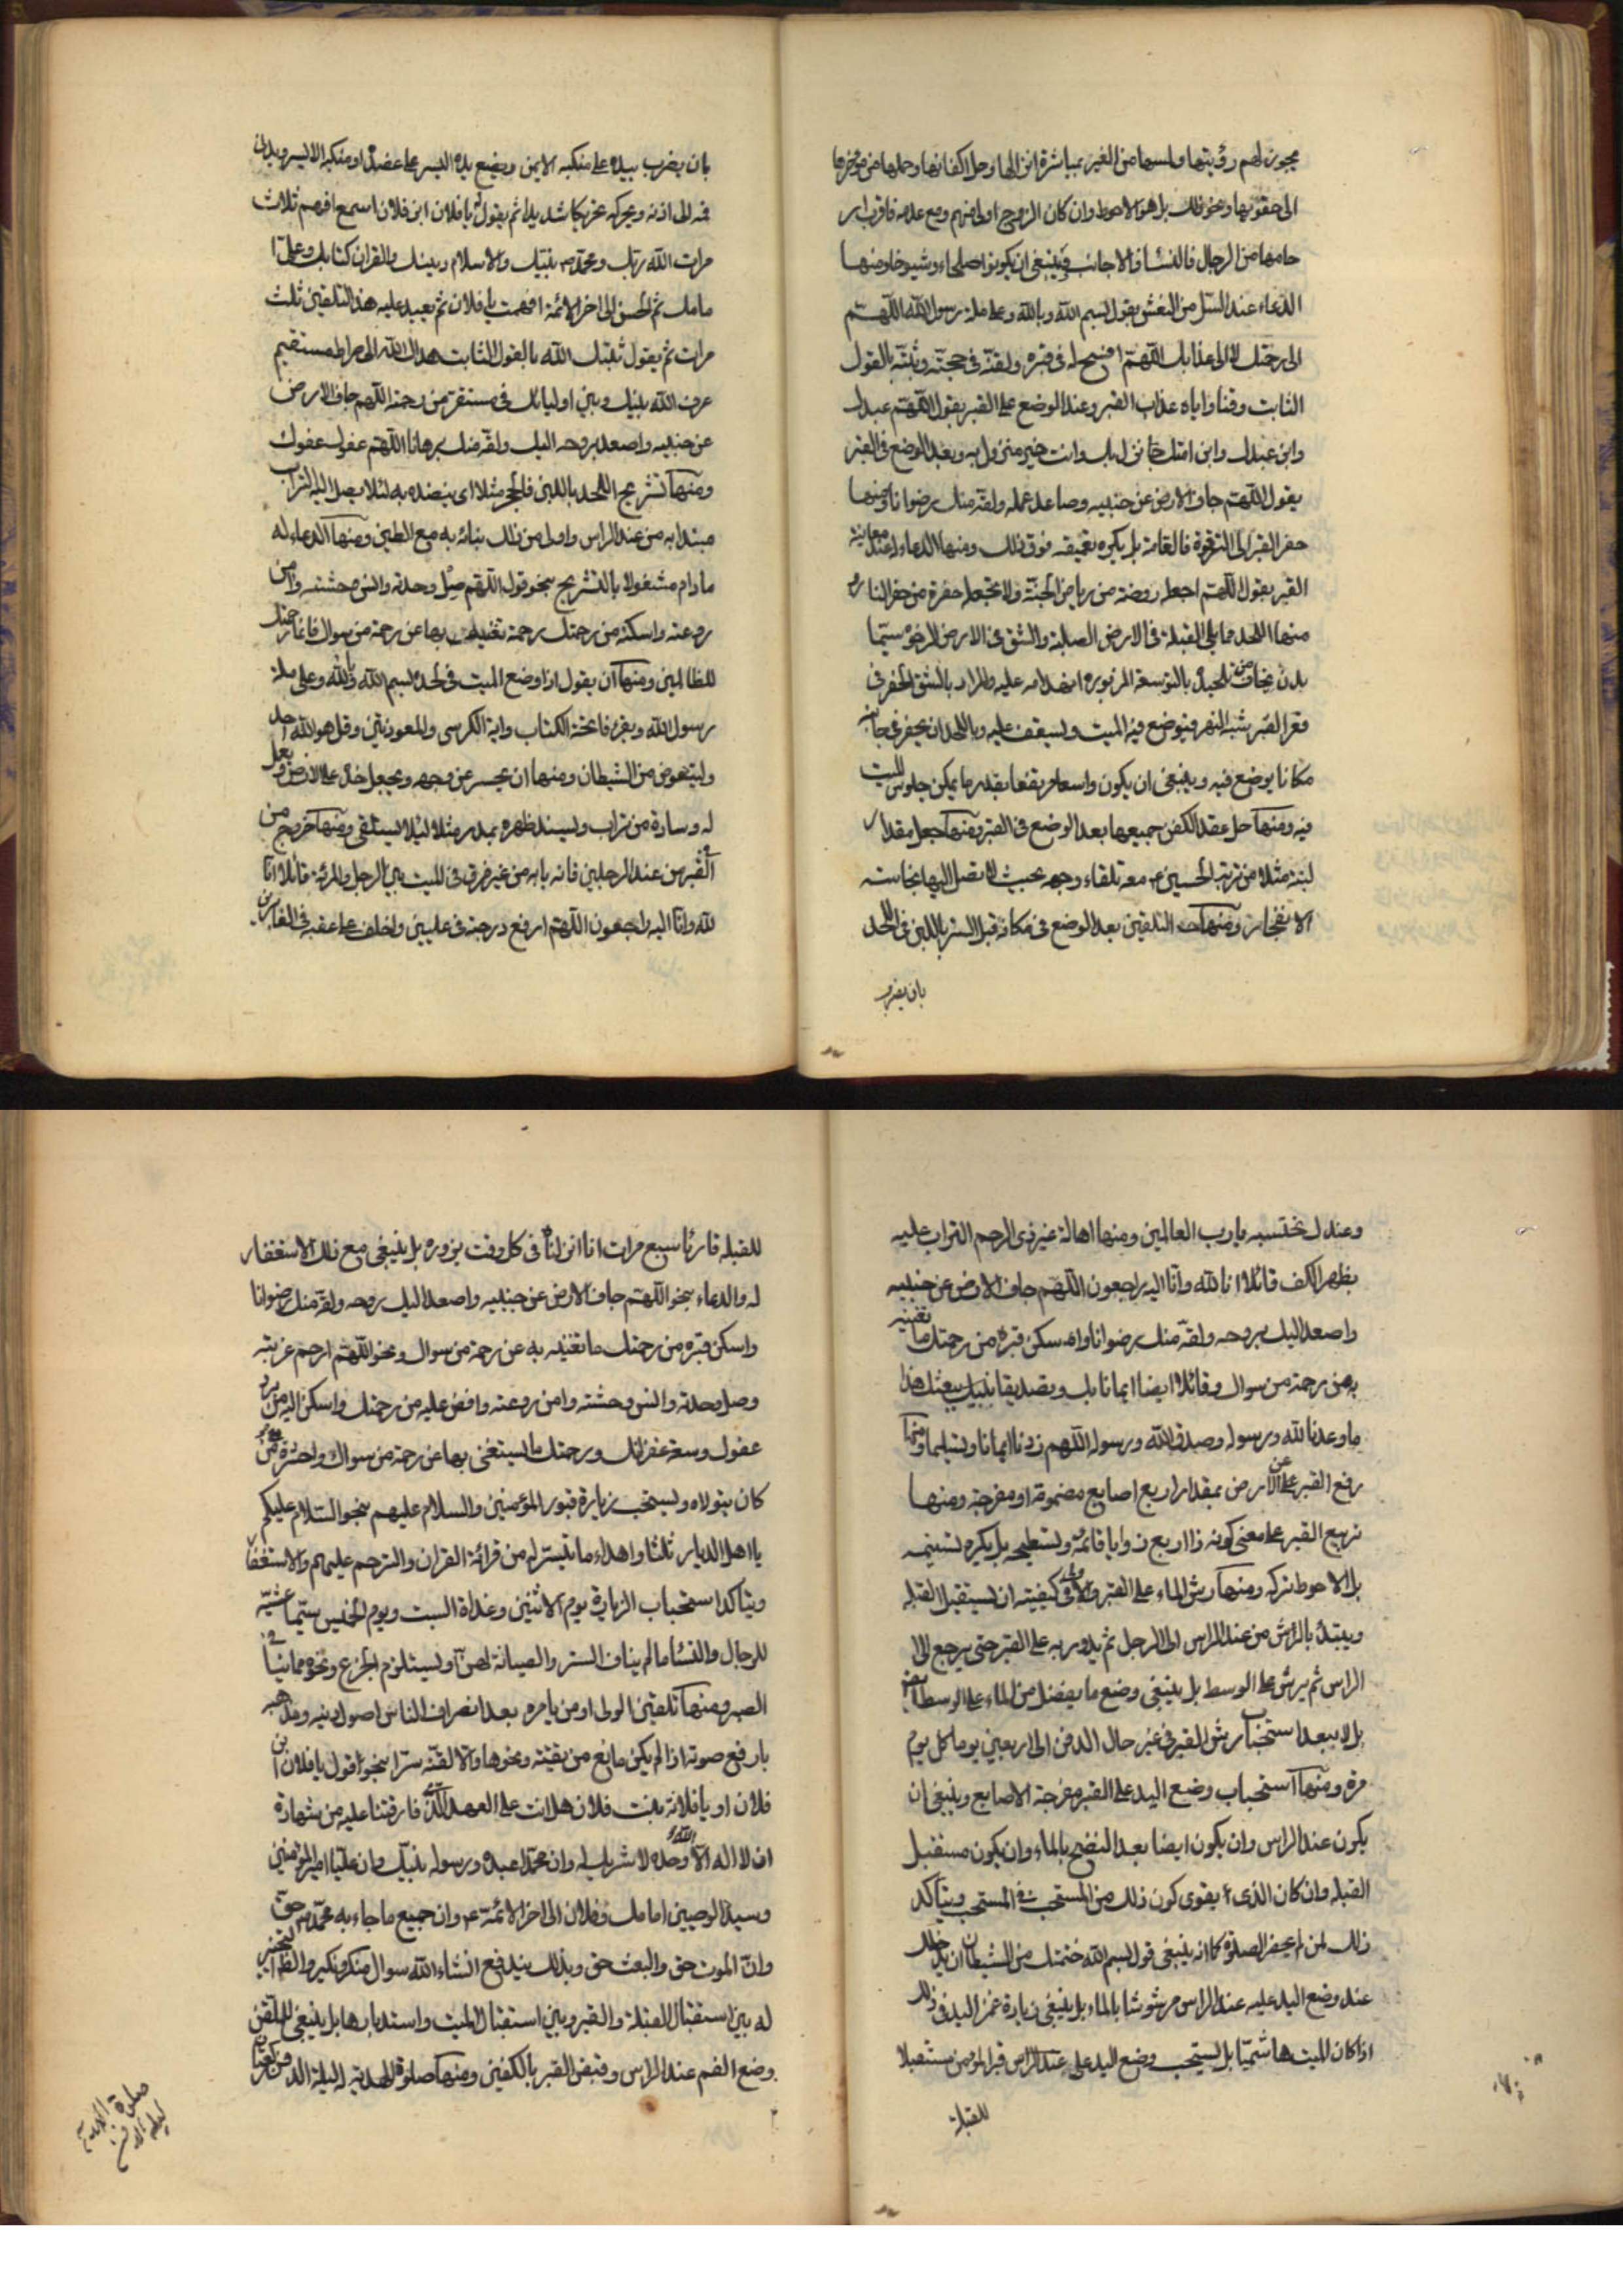 يجوز لهم رؤيتها ولمسها من الغير بمباشرة انزالها وحل اكفانها وحملها من مؤخرها
الى حقويها ونحو ذلك بل هو الاحوط وان كان الزوج اولى منهم ومع عدمه فاقرب ار
حامها من الرجال فالنسا فالاجانب فينبغى ان يكونوا صلحاء وشيوخا ومنها
الدعاء عند السل من النعش بقول بسم الله وبالله وعلى ملة رسول الله اللهم
الى رحمتك لا الى عذابك اللهم افسح له فى قبره ولقنه فى حجته وثبته بالقول
الثابت وقنا واياه عذاب القبر وعند الوضع على القبر بقول اللهم عبدك
وابن عبدك وابن امتك نزل بك وانت خير منزول به وبعد الوضع فى القبر
بقول اللهم جاف الارض عن جنبيه وصاعد عمله ولقه منك رضوانا ومنها
حفر القبر الى الترقوة فالقامة بل يكره تعميقه فوق ذلك ومنها الدعاء عند معاينة
القبر بقول اللهم اجعله روضة من رياض الجنة ولا تجعله حفرة من حفر النار و
منها اللحد مما يلى القبلة فى الارض الصلبة والشق فى الارض الرخوة سيما
بدن يخاف من لحده بالتوسعة المزبورة انهدامه عليه والمراد بالشق الحفر فى
قعر القبر شبه النهر فيوضع فيه الميت ويسقف عليه وباللحد ان يحفر فى جانبه
مكانا يوضع فيه وينبغى ان يكون واسعا مرتفعا بقدر ما يمكن جلوس الميت
فيه ومنها حل عقد الكفن جميعها بعد الوضع فى القبر ومنها جعل مقدار
لبنة مثلا من تربة الحسين ع معه تلقاء وجهه بحيث لا تصل اليها نجاسة
الانفجار ومنها التلقين بعد الوضع فى مكانه قبل الستر باللبن فى اللحد
بان يضرب
بان يضرب بيده على منكبه الايمن ويضع يده اليسرى على عضده او منكبه الايسر ويدنى
فمه الى اذنه ويحركه تحريكا شديدا ثم يقول يا فلان ابن فلان اسمع افهم ثلاث
مرات الله ربك ومحمد ص نبيك والاسلام دينك والقران كتابك وعلى ا
مامك ثم الحسن الى اخر الائمة افهمت يا فلان ثم يعيد عليه هذا التلقين ثلث
مرات ثم يقول ثبتك الله بالقول الثابت هداك الله الى صراط مستقيم
عرف الله بينك وبين اوليائك فى مستقر من رحمته اللهم جاف الارض
عن جنبيه واصعد بروحه اليك ولقه منك برهانا اللهم عفوك عفوك
ومنها تشريج اللحد باللبن فالحجر مثلا اى ينضده به لئلا يصل اليه التراب
مبتدا به من عند الراس واولى من ذلك بنائه به مع الطين ومنها الدعاء له
ما دام مشغولا بالتشريج بنحو قوله اللهم صل وحدته وانس وحشته وامن
روعته واسكنه من رحمتك رحمة تغنيه بها عن رحمة من سواك فانما رحمتك
للظالمين ومنها ان يقول اذا وضع الميت فى لحده بسم الله وبالله وعلى ملة
رسول الله ويقرء فاتحة الكتاب واية الكرسى والمعوذتين وقل هو الله احد
وليتعوض من الشيطان ومنها ان يحسر عن وجهه ويجعل خده على الارض ويعمل
له وسادة من تراب ويسند ظهره بمدر مثلا لئلا يستلقى ومنها خروج من
القبر من عند الرجلين فانه بابه من غير فرق فى الميت بين الرجل والمرئة قائلا انا
لله وانا اليه راجعون اللهم ارفع درجته فى عليين واخلف على عقبه فى الغابرين
وعندك نحتسبه يا رب العالمين ومنها اهالة غير ذى الرحم التراب عليه
بظهر الكف قائلا انا لله وانا اليه راجعون اللهم جاف الارض عن جنبيه
واصعد اليك بروحه ولقه منك رضوانا واسكن قبره من رحمتك ما تغنيه
به عن رحمة من سواك وقائلا ايضا ايمانا بك وتصديقا بنبيك ببعثك هذا
ما وعدنا الله ورسوله وصدق الله ورسوله اللهم زدنا ايمانا وتسليما ومنها
رفع القبر عن الارض بمقدار اربع اصابع مضمومة او مفرجة ومنها
تربيع القبر على معنى كونه ذا اربع زوايا قائمة وتسطيحه بل يكره تسنيمه
بل الاحوط تركه ومنها رش الماء على القبر والاولى فى كيفيته ان يستقبل القبلة
ويبتدئ بالرش من عند الراس الى الرجل ثم يدور به على القبر حتى يرجع الى
الراس ثم يرش على الوسط بل ينبغى وضع ما يفضل من الماء على الوسط ايضا
بل لا يبعد استحباب رش القبر فى غير حال الدفن الى اربعين يوما كل يوم
مرة ومنها استحباب وضع اليد على القبر مفرجة الاصابع وينبغى ان
يكون عند الراس وان يكون ايضا بعد النضح بالماء وان يكون مستقبل
القبلة وان كان الذى يقوى كون ذلك من المستحب فى المستحب ويتاكد
ذلك لمن لم يحضر الصلوة كما انه ينبغى قول بسم الله ختمتك من الشيطان ان يدخلك
عند وضع اليد عليه عند الراس مرشوشا بالماء بل ينبغى زيادة غمز اليد فى ذلك
اذا كان الميت هاشميا بل يستحب وضع اليد على عند الراس قبر المؤمن مستقبلا
للقبلة
للقبلة قارئا سبع مرات انا انزلناه فى كل وقت يزوره بل ينبغى مع ذلك الاستغفار
له والدعاء بنحو اللهم جاف الارض عن جنبيه واصعد اليك روحه ولقه منك رضوانا
واسكن قبره من رحمتك ما تغنيه به عن رحمة من سواك ونحو اللهم ارحم غربته
وصل وحدته وانس وحشته وامن روعته وافض عليه من رحمتك واسكن اليه من برد
عفوك وسعة غفرانك ورحمتك ما يستغنى بها عن رحمة من سواك واحشره مع من
كان يتولاه ويستحب زيارة قبور المؤمنين والسلام عليهم بنحو السلام عليكم
يا اهل الديار ثلثا واهداء ما تيسر له من قرائة القران والترحم عليهم والاستغفار
ويتاكد استحباب الزيارة يوم الاثنين وغداة السبت ويوم الخميس سيما عشيه
للرجال والنسا ما لم يناف الستر والصيانة لهن او يستلزم الجزع ونحوه مما ينافى
الصبر ومنها تلقين الولى او من يامره بعد انصراف الناس اصول دينه ومذهبه
بارفع صوته اذا لم يكن مانع من تقيته ونحوها والا لقنه سرا بنحو قول يا فلان ابن
فلان او يا فلانة بنت فلان هل انت على العهد الذى فارقتنا عليه من شهادة
ان لا اله الا الله وحده لا شريك له وان محمدا عبده ورسوله نبيك وان عليا امير المؤمنين
وسيد الوصيين امامك وفلان الى اخر الائمة ع وان جميع ما جاء به محمد ص حق
وان الموت حق والبعث حق وبذلك يندفع انشاء الله سوال منكر ونكير والظاهر التخيير
له بين استقبال القبلة والقبر وبين استقبال الميت واستدبارها بل ينبغى للملقن
وضع الفم عند الراس وقبض القبر بالكفين ومنها صلوة الهدية ليلة الدفن
صلوة الهدية
ليلة الدفن